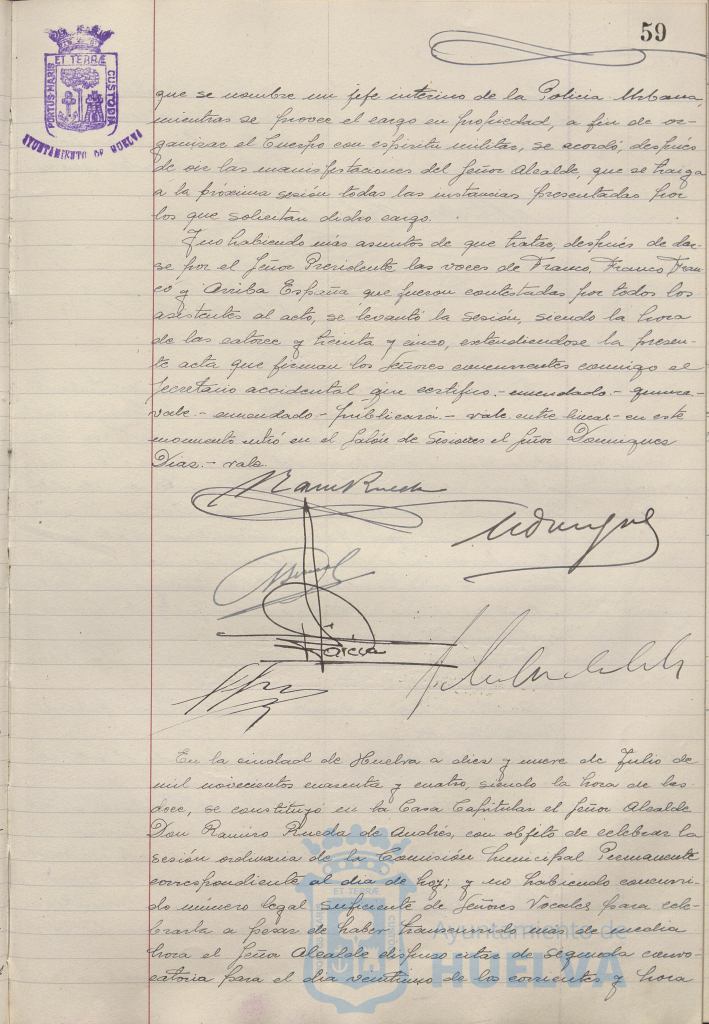 59
ET TERRÆ
PORTUS MARIS
CUSTODIA
AYUNTAMIENTO DE HUELVA
que se nombre un jefe interino de la Policia Urbana,
mientras se provee el cargo en propiedad, a fin de or-
ganizar el Cuerpo con espiritu militar, se acordó, después
de oir las manifestaciones del Señor Alcalde, que se traiga
a la próxima sesión todas las instancias presentadas por
los que solicitan dicho cargo.
Y no habiendo más asuntos de que tratar, después de dar-
se por el Señor Presidente las voces de Franco, Franco Fran-
co y Arriba España que fueron contestadas por todos los
asistentes al acto, se levantó la sesión, siendo la hora
de las catorce y treinta y cinco, extendiendose la presen-
te acta que firman los Señores concurrentes conmigo el
Secretario accidental que certifico.- enmendado.-
vale.- enmendado.- publicará.- vale entre lineas.- en este
momento entró en el Salón de Sesiones el Señor Dominguez
Diaz.- vale.
Ram Rueda
En la ciudad de Huelva a diez y nueve de Julio de
mil novecientos cuarenta y cuatro, siendo la hora de las
doce, se constituyó en la Casa Capitular el Señor Alcalde
Don Ramiro Rueda de Andrés, con objeto de celebrar la
sesión ordinaria de la Comisión Municipal Permanente
correspondiente al dia de hoy; y no habiendo concurri-
do número legal suficiente de Señores Vocales para cele-
brarla a pesar de haber transcurrido más de media
hora el Señor Alcalde dispuso citar de segunda convo-
catoria para el dia veintiuno de los corrientes y hora
ET TERRÆ
PORTUS MARIS
CUSTODIA
Ayuntamiento de
HUELVA